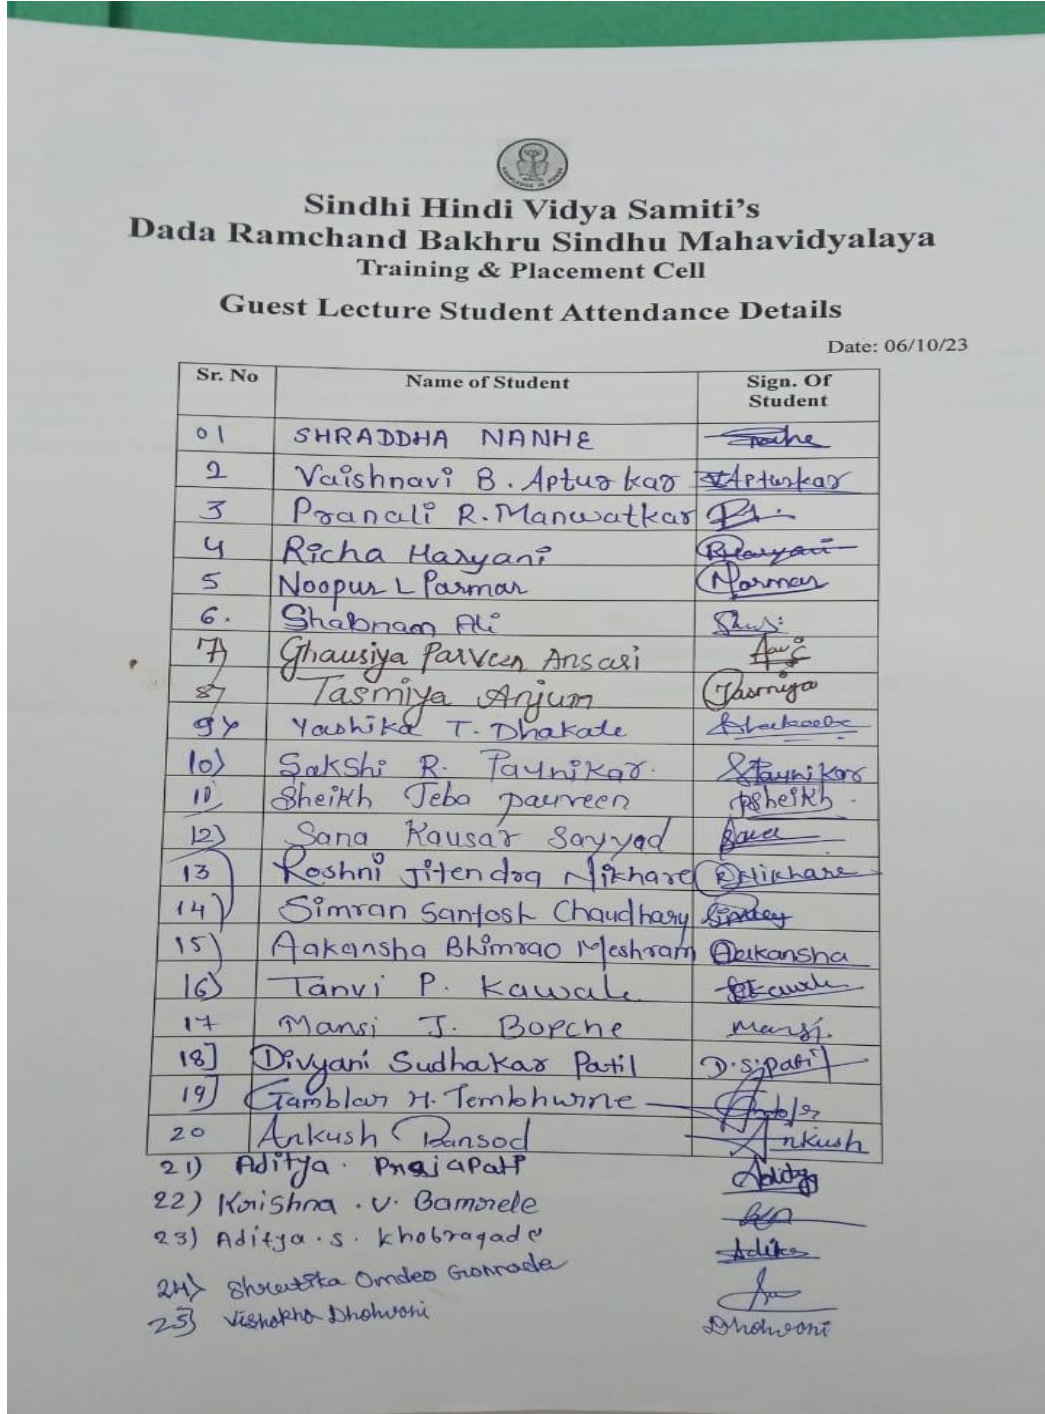 Sindhi Hindi Vidya Samiti's
Dada Ramchand Bakhru Sindhu Mahavidyalaya
Training & Placement Cell
Guest Lecture Student Attendance Details
Date: 06/10/23
Sr. No Name of Student Sign. Of Student
01 SHRADDHA NANHE
2 Vaishnavi B. Apturkar VApturkar
3 Pranali R. Manwatkar
4 Richa Haryani RHaryani
5 Noopur L Parmar Parmar
6. Shabnam Ali
7) Ghausiya Parveen Ansari
8) Tasmiya Anjum Tasmiya
9) Yashika T. Dhakate
10) Sakshi R. Paunikar. SPaunikar
11) Sheikh Jeba parveen psheikh.
12) Sana Kausar Sayyad Sana
13 Roshni Jitendra Nikhare RNikhare
14) Simran Santosh Chaudhary
15) Aakansha Bhimrao Meshram Aakansha
16) Tanvi P. Kawale
17 Mansi J. Bopche Mansi.
18] Divyani Sudhakar Patil D.S.patil
19] H. Tembhurne
20 Ankush Bansod Ankush
21) Aditya. Prajapati Aditya
22) Krishna. V. Bamrele
23) Aditya. S. Khobragade
24) Omdeo
25) Vishakha Dholwani Dholwani